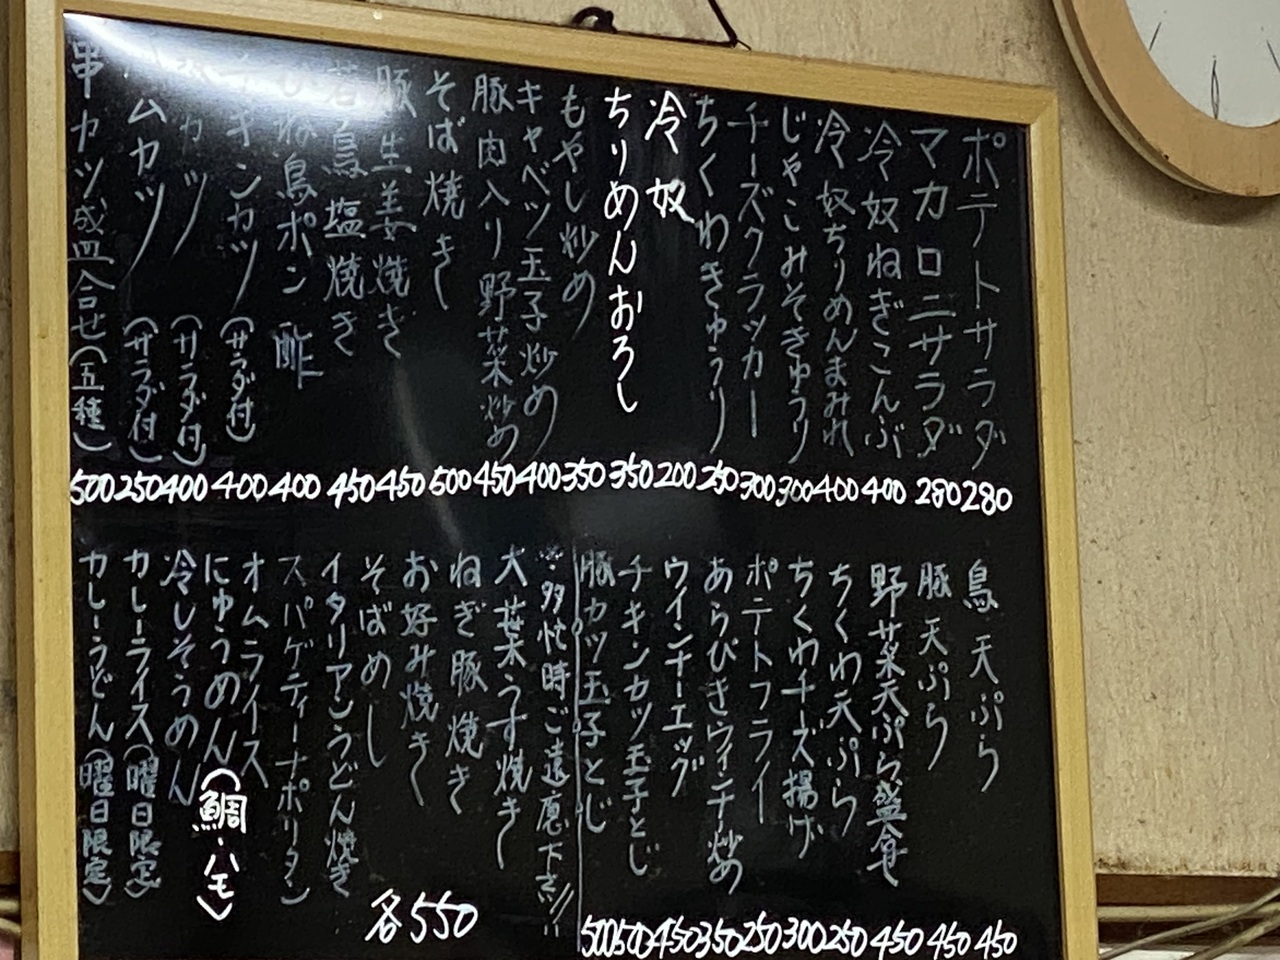 ポテトサラダ 280
マカロニサラダ 280
冷奴ねぎこんぶ 400
冷奴ちりめんまみれ 400
じゃこみそきゅうり 300
チーズクラッカー 300
ちくわきゅうり 250
冷奴 200
ちりめんおろし 350
もやし炒め 350
キャベツ玉子炒め 400
豚肉入り野菜炒め 450
そば焼き 500
豚生姜焼き 450
若鳥塩焼き 450
ひね鳥ポン酢 400
チキンカツ(サラダ付) 400
カツ(サラダ付) 400
ハムカツ(サラダ付) 250
串カツ盛合せ(五種) 500
鳥天ぷら 450
豚天ぷら 450
野菜天ぷら盛合せ 450
ちくわ天ぷら 250
ちくわチーズ揚げ 300
ポテトフライ 250
あらびきウィンナ炒め 350
ウインナーエッグ 450
チキンカツ玉子とじ 500
豚カツ玉子とじ 500
※多忙時ご遠慮下さい!!
大葉うす焼き
ねぎ豚焼き
お好み焼き
そばめし
イタリアンうどん焼き
スパゲティーナポリタン
オムライース
にゅうめん(鯛・ハモ)
冷しそうめん
カレーライス(曜日限定)
カレーうどん(曜日限定)
各550